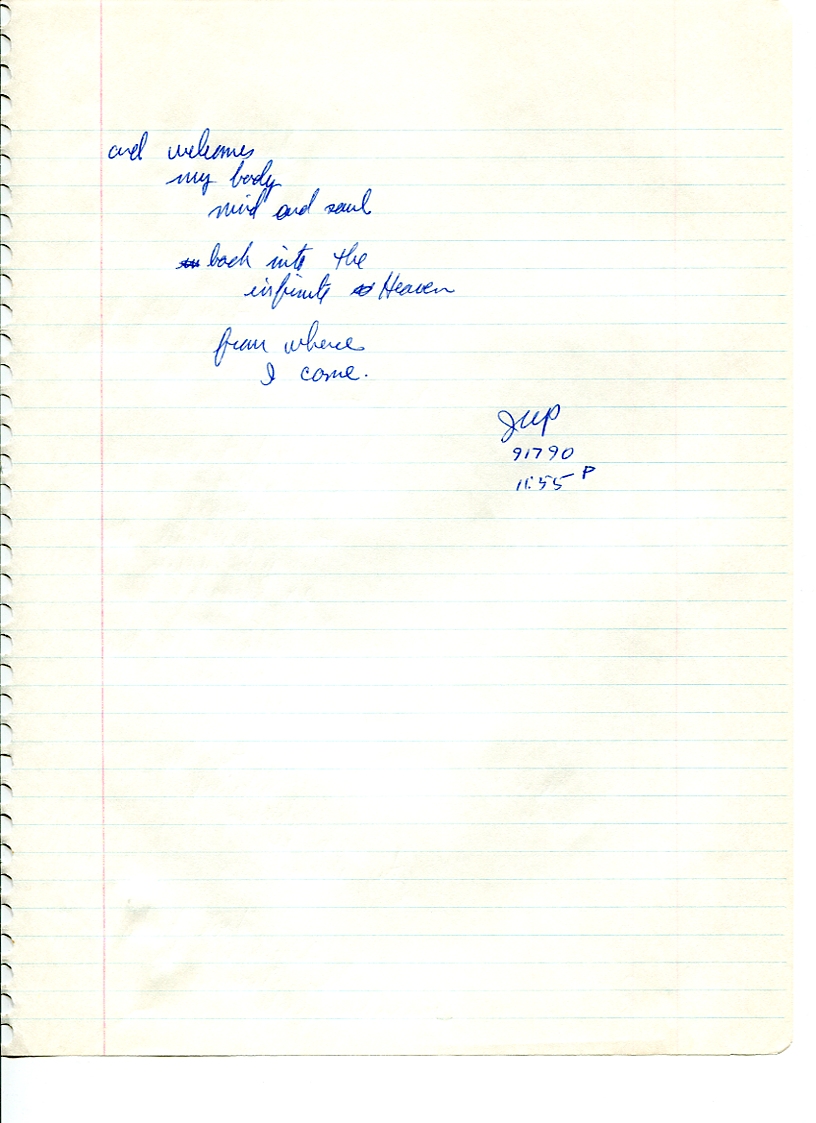 and welcomes
my body
mind and soul
back into the
infinite Heaven
from where
I come.
JWP
91790
11:55 P